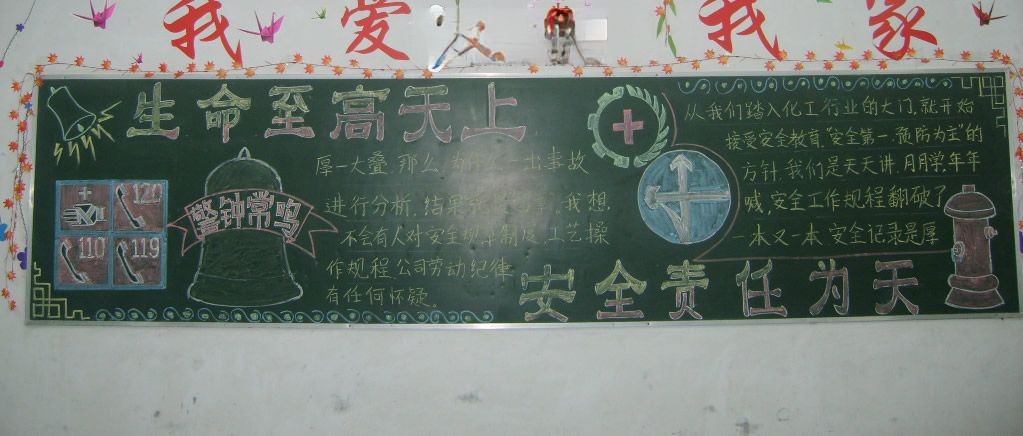 我爱 我家
生命至高天上
120
110
119
警钟常鸣
从我们踏入化工行业的大门,就开始
接受安全教育,“安全第一预防为主”的
方针,我们是天天讲,月月学,年年
喊,安全工作规程翻破了
一本又一本,安全记录是厚
厚一大叠,那么为什么一出事故
进行分析,结果 我想,
不会有人对安全规章制度,工艺操
作规程,公司劳动纪律
有任何怀疑。
安全责任为天